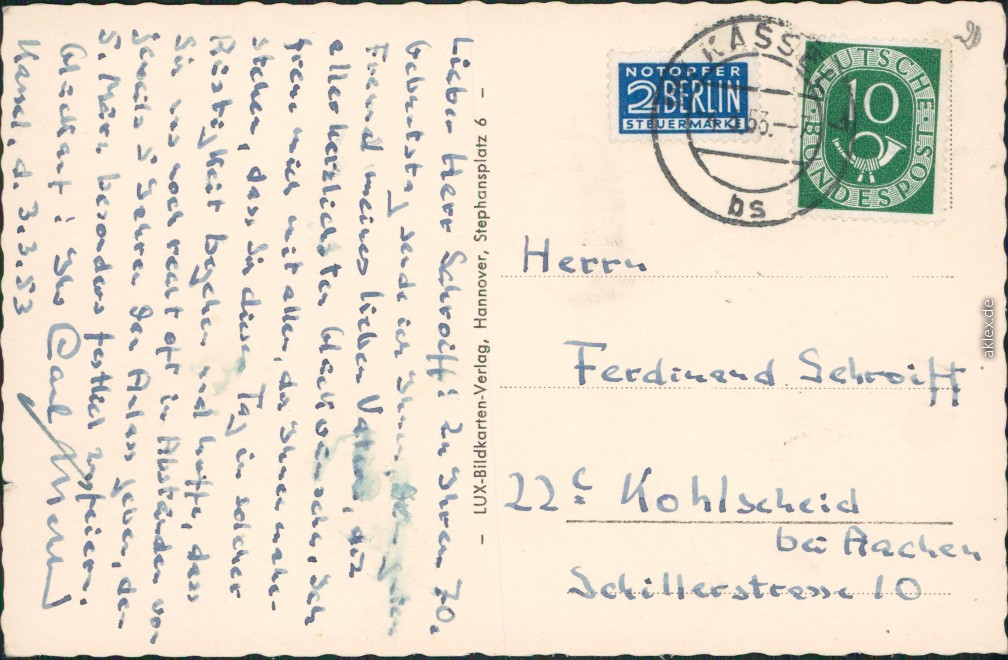 Lieber Herr Schroiff! Zu Ihrem 70.
Geburtstag sende ich Ihnen, dem
Freund meines lieben Vaters, die
allerherzlichsten Glückwünsche. Ich
freue mich mit allen, die Ihnen nahe-
stehen, dass Sie diesen Tag in solcher
Rüstigkeit begehen und hoffe, dass
Sie uns noch recht oft in Abständen von
jeweils 5 Jahren den Anlass geben, den
5. März besonders festlich zu feiern.
Glückauf! Ihr Carl
Kassel, d. 3.3.53
– LUX-Bildkarten-Verlag, Hannover, Stephansplatz 6 –
NOTOPFER
2 BERLIN
STEUERMARKE
KASSEL
53.
bs
DEUTSCHE
BUNDESPOST
10
Herrn
Ferdinand Schroiff
22c Kohlscheid
bei Aachen
Schillerstrasse 10
aklex.de